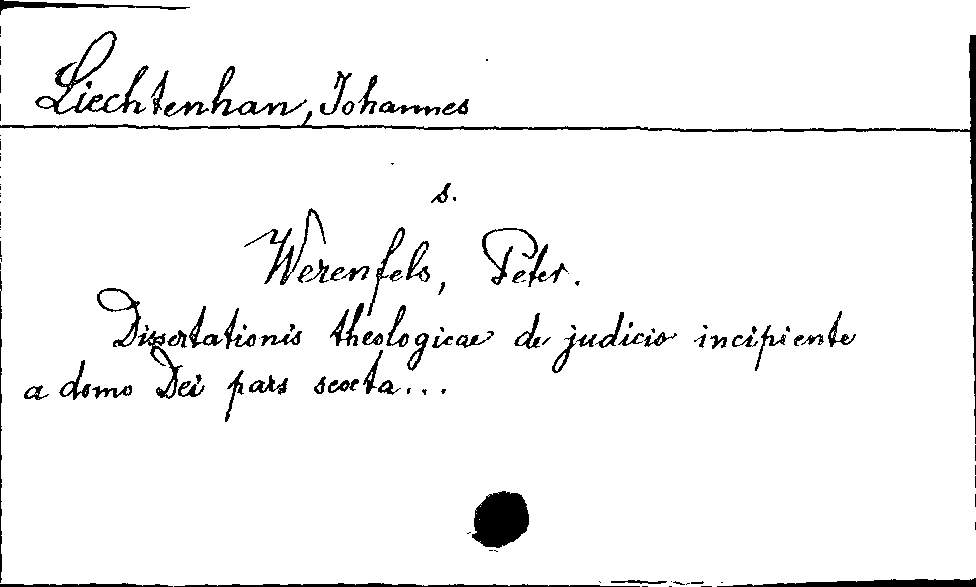 Liechtenhan, Johannes
s.
Werenfels, Peter.
Dissertationis theologicae de judicio incipiente
a domo Dei pars sexta...